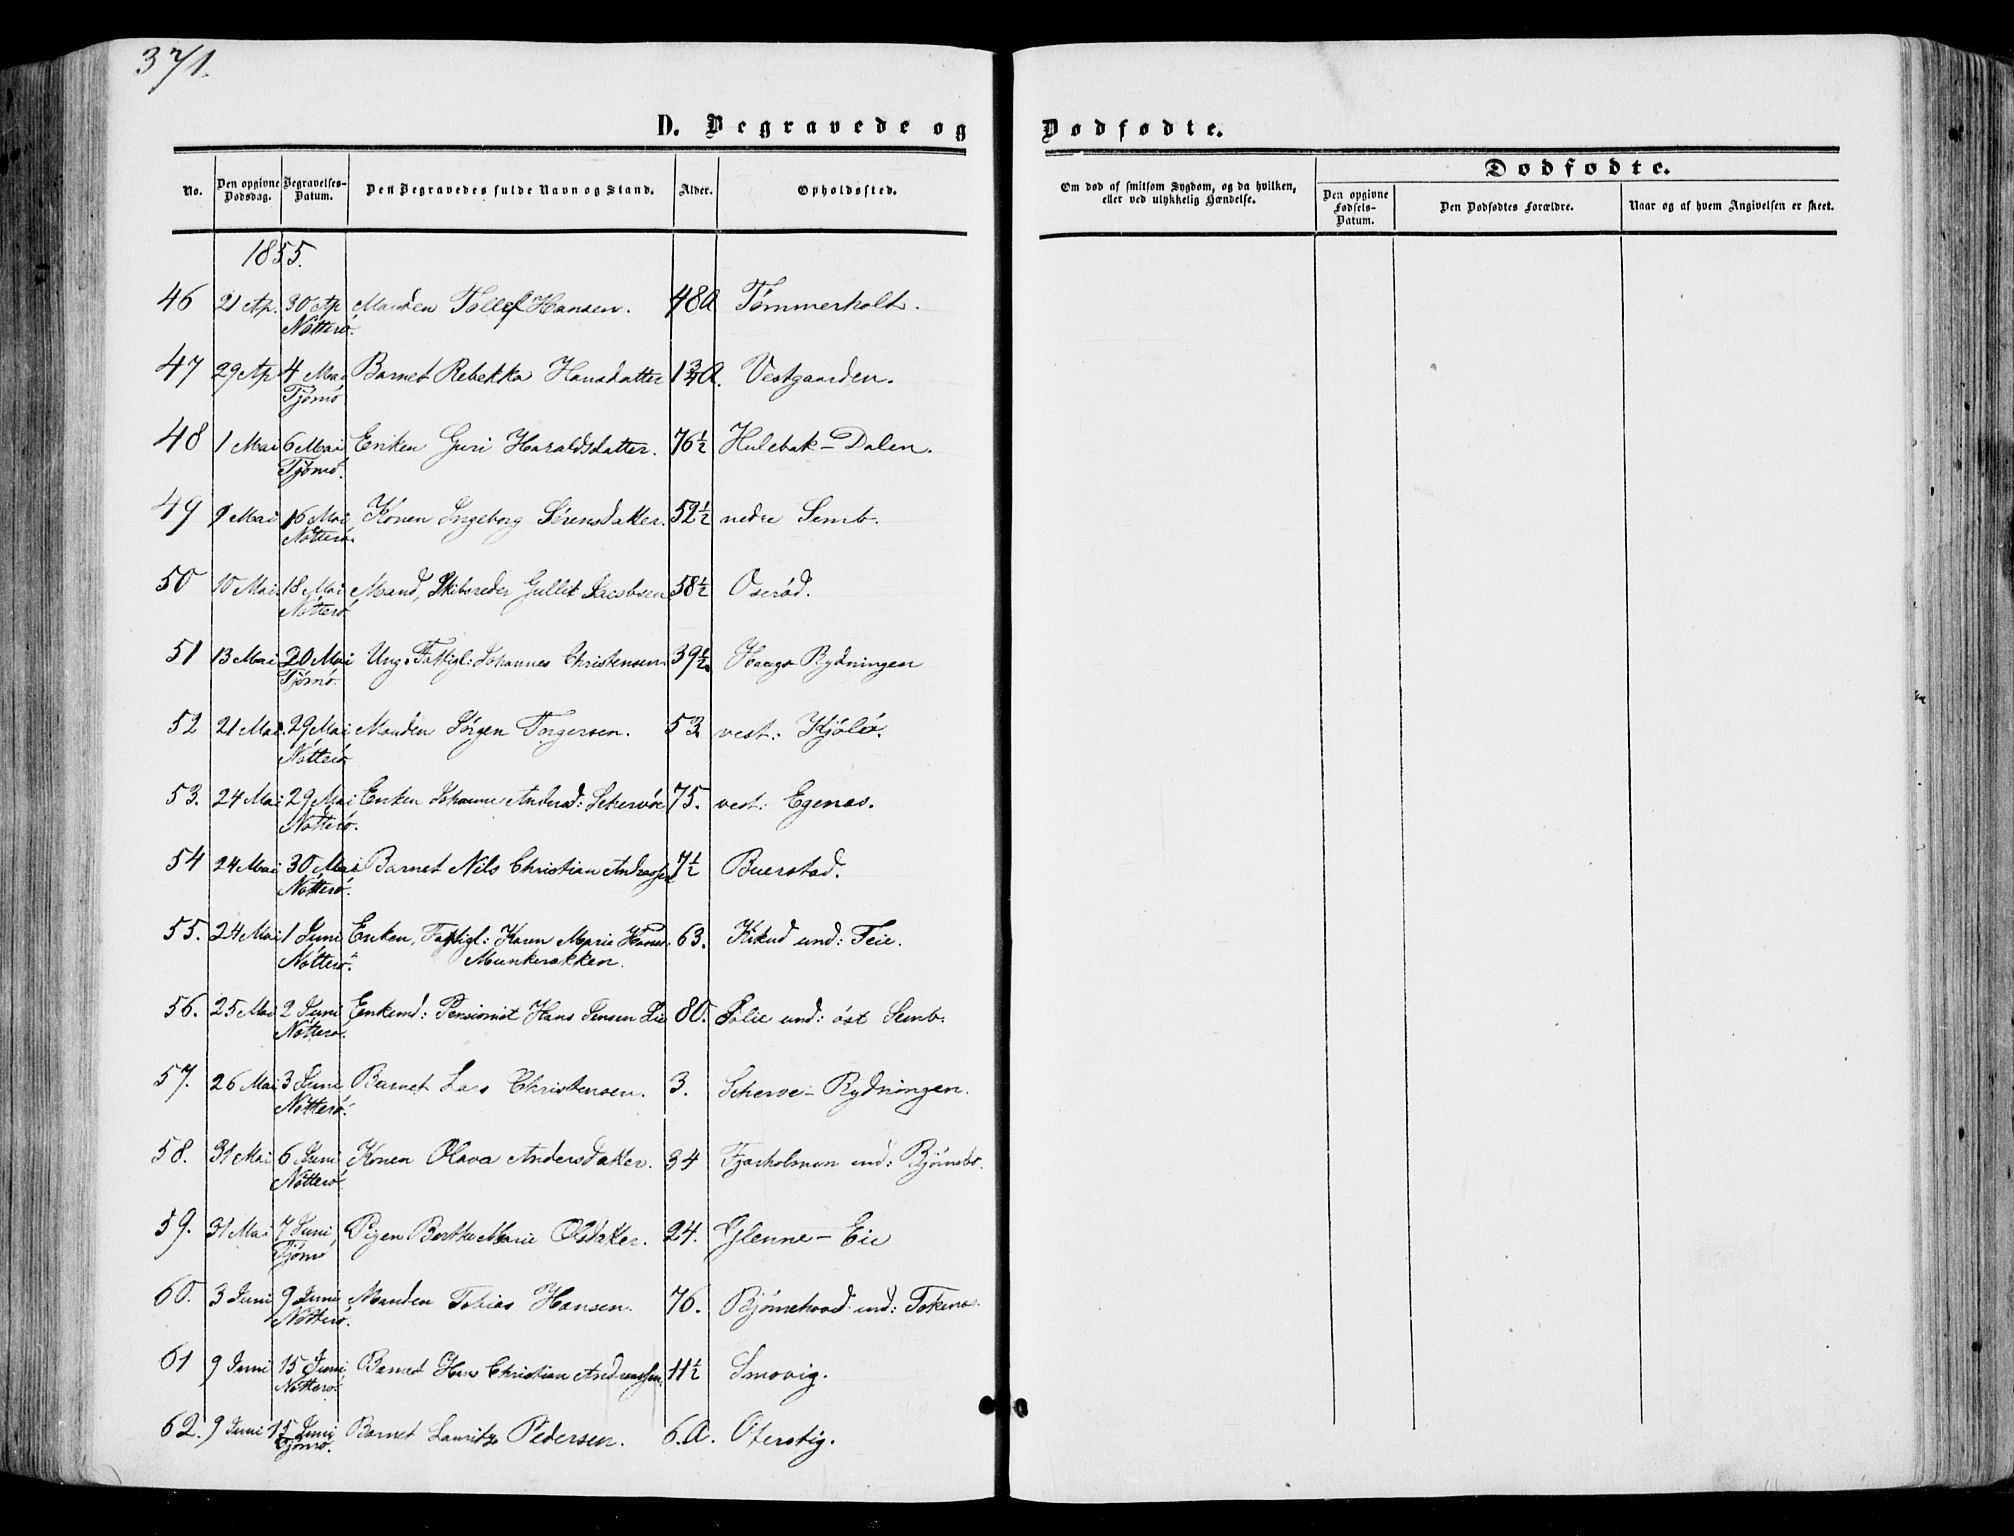 371.
D. Begravede og
Dødfødte.
No.
Den opgivne Dødsdag.
Begravelses-Datum.
Den Begravedes fulde Navn og Stand.
Alder.
Opholdssted.
Om død af smitsom Sygdom, og da hvilken, eller ved ulykkelig Hændelse.
Dødfødte.
Den opgivne Fødsels-Datum.
Den Dødfødtes Forældre.
Naar og af hvem Angivelsen er skeet.
1855.
46 21 Ap. 30 Ap Manden Tollef Hansen. 48 A Tømmerholt.
Nøtterø.
47 29 Ap 4 Mai Barnet Rebekka Hansdatter 1 3/4 A. Vestgaarden.
Tjømø
48 1 Mai 6 Mai Enken Guri Haraldsdatter. 76 1/2 Hulebak - Dalen.
Tjømø.
49 9 Mai 16 Mai Konen Ingeborg Sørensdatter. 52 1/2 nedre Semb.
Nøtterø.
50 10 Mai 18 Mai Mand, Skibsreder Gullik Jacobsen 58 1/2 Oserød.
Nøtterø
51 13 Mai 20 Mai Ung. Fattigl: Johannes Christensen. 39 1/2 Haugs Rydningen
Tjømø.
52 21 Mai. 29 Mai Manden Jørgen Torgersen. 53 vest: Kjølø.
Nøtterø
53. 24 Mai 29 Mai Enken Johanne Andersd: Schervøe 75. vest: Egenes.
Nøtterø.
54 24 Mai 30 Mai Barnet Nils Christian Andreassen 7 1/2 Buerstad.
Nøtterø.
55. 24 Mai 1 Juni Enken, Fattigl: Karen Marie Hansd. 63. Kikud und: Teie.
Nøtterø. Munkerekken.
56. 25 Mai 2 Juni Enkemd: Pensionist Hans Jensen Lie 80. Solie und: øst Semb.
Nøtterø.
57. 26 Mai 3 Juni Barnet Lars Christensen. 3. Scherve - Rydningen.
Nøtterø.
58. 31 Mai 6 Juni Konen Olava Andersdatter. 34 Fjærholmen und: Bjørnebo.
Nøtterø.
59. 31 Mai 7 Juni Pigen Berthe Marie Olsdatter. 24. Glenne - Eie
Tjømø
60. 3 Juni 9 Juni Manden Tobias Hansen. 76. Bjørnehoved und: Tokenæs.
Nøtterø.
61 9 Juni 15 Juni Barnet Hans Christian Andreassen. 11 1/2 Smovig.
Nøtterø.
62. 9 Juni 15 Juni Barnet Lauritz Pedersen. 6. A. Oterstig.
Tjømø.